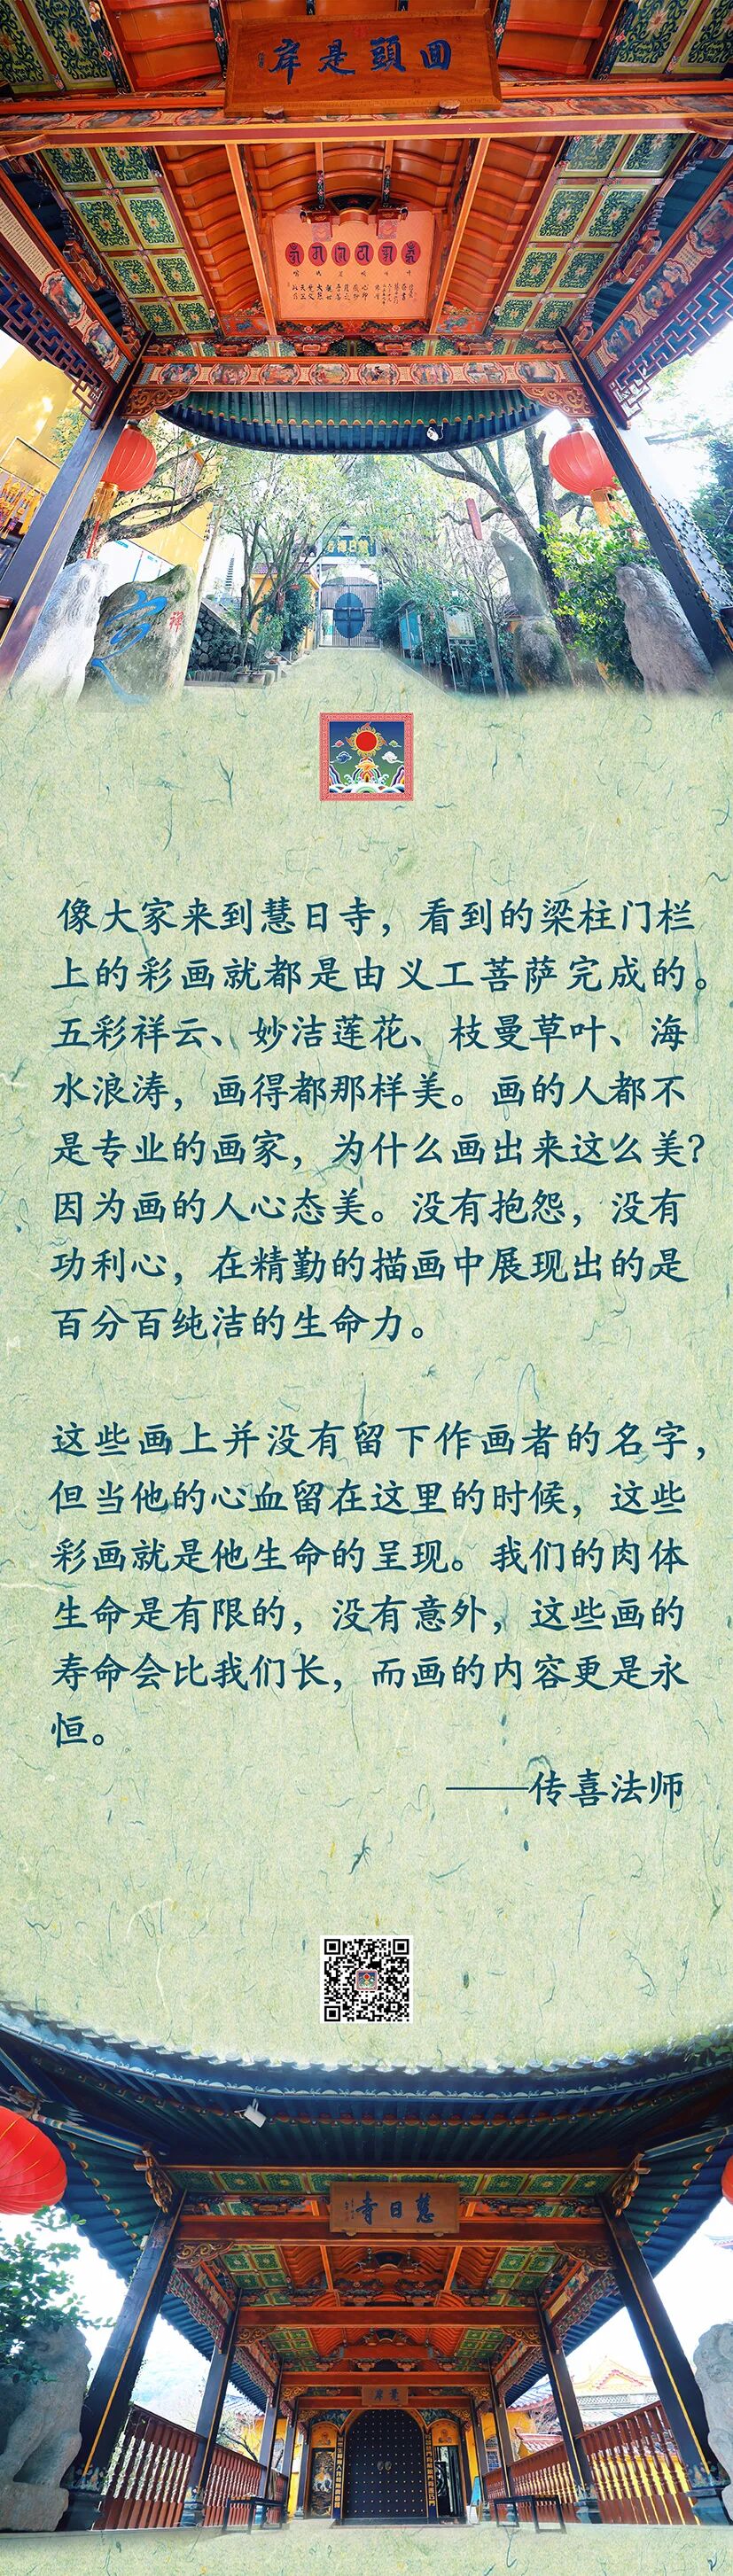 回頭是岸
定
禅
像大家来到慧日寺，看到的梁柱门栏
上的彩画就都是由义工菩萨完成的。
五彩祥云、妙洁莲花、枝曼草叶、海
水浪涛，画得都那样美。画的人都不
是专业的画家，为什么画出来这么美？
因为画的人心态美。没有抱怨，没有
功利心，在精勤的描画中展现出的是
百分百纯洁的生命力。
这些画上并没有留下作画者的名字，
但当他的心血留在这里的时候，这些
彩画就是他生命的呈现。我们的肉体
生命是有限的，没有意外，这些画的
寿命会比我们长，而画的内容更是永
恒。
——传喜法师
慧日寺